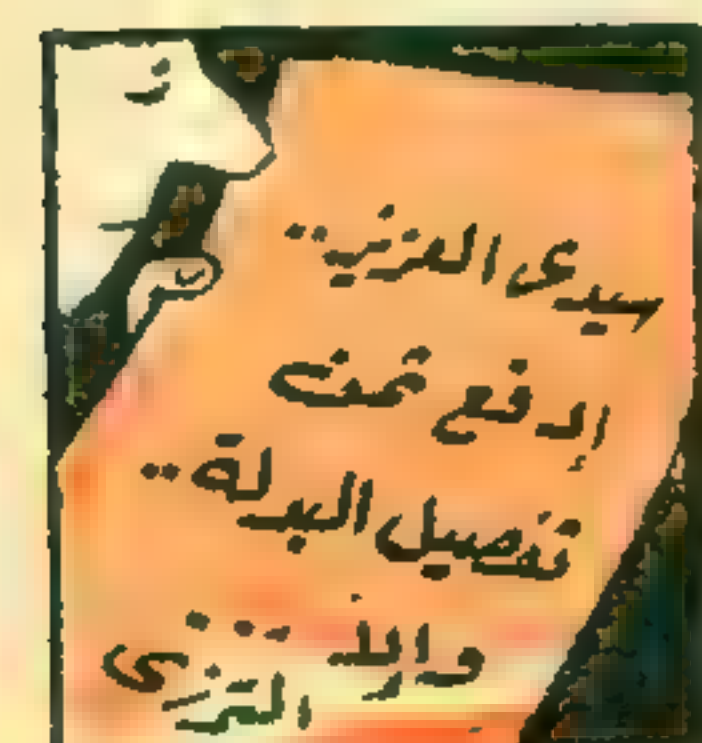 سيدى العزيز..
إدفع ثمن
تفصيل البدلة..
وإلا ...
الترزى